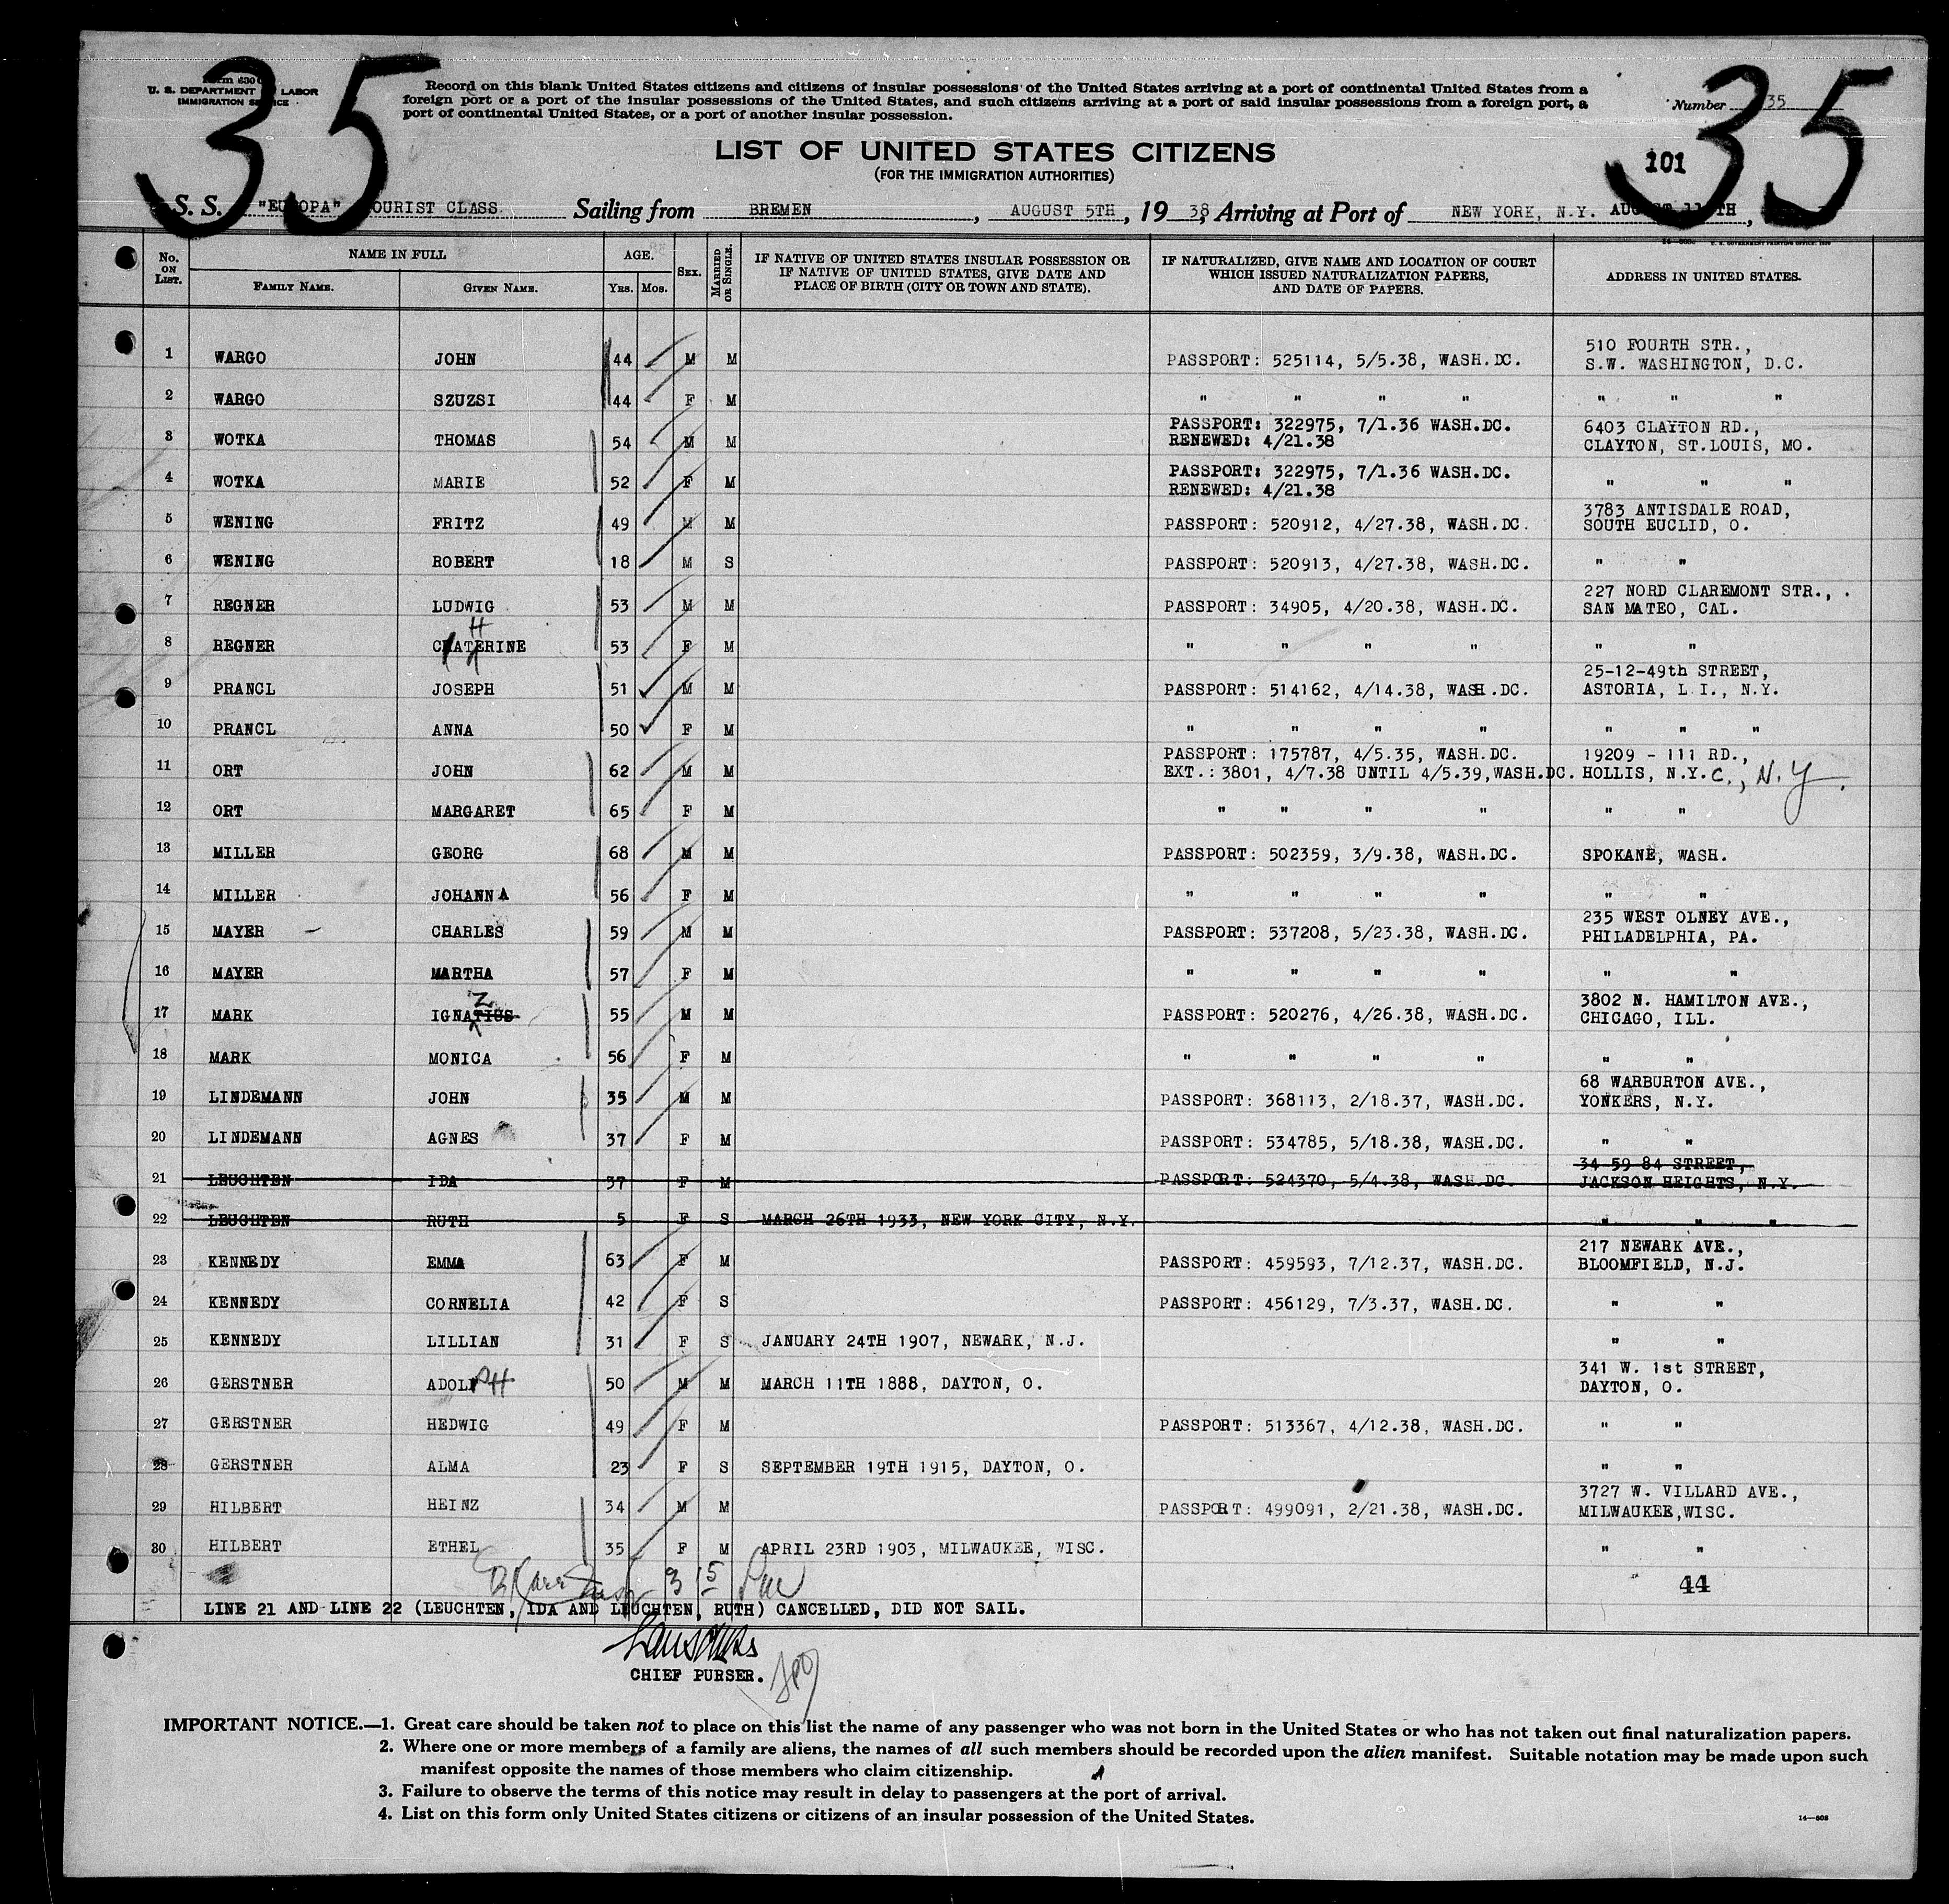 35
35
Form 630
U. S. DEPARTMENT LABOR
IMMIGRATION SERVICE
Record on this blank United States citizens and citizens of insular possessions of the United States arriving at a port of continental United States from a
foreign port or a port of the insular possessions of the United States, and such citizens arriving at a port of said insular possessions from a foreign port, a
port of continental United States, or a port of another insular possession.
Number 35
LIST OF UNITED STATES CITIZENS
(FOR THE IMMIGRATION AUTHORITIES)
101
S. S. "EUROPA" TOURIST CLASS Sailing from BREMEN, AUGUST 5TH, 19 38, Arriving at Port of NEW YORK, N.Y. AUGUST 11TH,
No. ON LIST. NAME IN FULL AGE. SEX. MARRIED OR SINGLE. IF NATIVE OF UNITED STATES INSULAR POSSESSION OR IF NATIVE OF UNITED STATES, GIVE DATE AND PLACE OF BIRTH (CITY OR TOWN AND STATE). IF NATURALIZED, GIVE NAME AND LOCATION OF COURT WHICH ISSUED NATURALIZATION PAPERS, AND DATE OF PAPERS. ADDRESS IN UNITED STATES.
FAMILY NAME. GIVEN NAME. YRS. MOS.
1 WARGO JOHN 44 M M PASSPORT: 525114, 5/5.38, WASH.DC. 510 FOURTH STR., S.W. WASHINGTON, D.C.
2 WARGO SZUZSI 44 F M " " " " " " "
3 WOTKA THOMAS 54 M M PASSPORT: 322975, 7/1.36 WASH.DC. RENEWED: 4/21.38 6403 CLAYTON RD., CLAYTON, ST.LOUIS, MO.
4 WOTKA MARIE 52 F M PASSPORT: 322975, 7/1.36 WASH.DC. RENEWED: 4/21.38 " " "
5 WENING FRITZ 49 M M PASSPORT: 520912, 4/27.38, WASH.DC. 3783 ANTISDALE ROAD, SOUTH EUCLID, O.
6 WENING ROBERT 18 M S PASSPORT: 520913, 4/27.38, WASH.DC. " "
7 REGNER LUDWIG 53 M M PASSPORT: 34905, 4/20.38, WASH.DC. 227 NORD CLAREMONT STR., SAN MATEO, CAL.
8 REGNER CATHERINE 53 F M " " " " " "
9 PRANCL JOSEPH 51 M M PASSPORT: 514162, 4/14.38, WASH.DC. 25-12-49th STREET, ASTORIA, L I., N.Y.
10 PRANCL ANNA 50 F M " " " " " " "
11 ORT JOHN 62 M M PASSPORT: 175787, 4/5.35, WASH.DC. EXT.: 3801, 4/7.38 UNTIL 4/5.39,WASH.DC. 19209 - 111 RD., HOLLIS, N.Y.C., N.Y.
12 ORT MARGARET 65 F M " " " " " "
13 MILLER GEORG 68 M M PASSPORT: 502359, 3/9.38, WASH.DC. SPOKANE, WASH.
14 MILLER JOHANNA 56 F M " " " " " "
15 MAYER CHARLES 59 M M PASSPORT: 537208, 5/23.38, WASH.DC. 235 WEST OLNEY AVE., PHILADELPHIA, PA.
16 MAYER MARTHA 57 F M " " " " " "
17 MARK IGNATIUS Z 55 M M PASSPORT: 520276, 4/26.38, WASH.DC. 3802 N. HAMILTON AVE., CHICAGO, ILL.
18 MARK MONICA 56 F M " " " " " "
19 LINDEMANN JOHN 35 M M PASSPORT: 368113, 2/18.37, WASH.DC. 68 WARBURTON AVE., YONKERS, N.Y.
20 LINDEMANN AGNES 37 F M PASSPORT: 534785, 5/18.38, WASH.DC. " "
21 LEUCHTEN IDA 37 F M PASSPORT: 524370, 5/4.38, WASH.DC. 34-59 84 STREET, JACKSON HEIGHTS, N.Y.
22 LEUCHTEN RUTH 5 F S MARCH 26TH 1933, NEW YORK CITY, N.Y. " " "
23 KENNEDY EMMA 63 F M PASSPORT: 459593, 7/12.37, WASH.DC. 217 NEWARK AVE., BLOOMFIELD, N.J.
24 KENNEDY CORNELIA 42 F S PASSPORT: 456129, 7/3.37, WASH.DC. " "
25 KENNEDY LILLIAN 31 F S JANUARY 24TH 1907, NEWARK, N.J. " "
26 GERSTNER ADOLPH 50 M M MARCH 11TH 1888, DAYTON, O. 341 W. 1st STREET, DAYTON, O.
27 GERSTNER HEDWIG 49 F M PASSPORT: 513367, 4/12.38, WASH.DC. " "
28 GERSTNER ALMA 23 F S SEPTEMBER 19TH 1915, DAYTON, O. " "
29 HILBERT HEINZ 34 M M PASSPORT: 499091, 2/21.38, WASH.DC. 3727 W. VILLARD AVE., MILWAUKEE,WISC.
30 HILBERT ETHEL 35 F M APRIL 23RD 1903, MILWAUKEE, WISC. " "
3 15
44
LINE 21 AND LINE 22 (LEUCHTEN, IDA AND LEUCHTEN, RUTH) CANCELLED, DID NOT SAIL.
CHIEF PURSER.
IMPORTANT NOTICE.—1. Great care should be taken not to place on this list the name of any passenger who was not born in the United States or who has not taken out final naturalization papers.
2. Where one or more members of a family are aliens, the names of all such members should be recorded upon the alien manifest. Suitable notation may be made upon such
manifest opposite the names of those members who claim citizenship.
3. Failure to observe the terms of this notice may result in delay to passengers at the port of arrival.
4. List on this form only United States citizens or citizens of an insular possession of the United States.
14—608